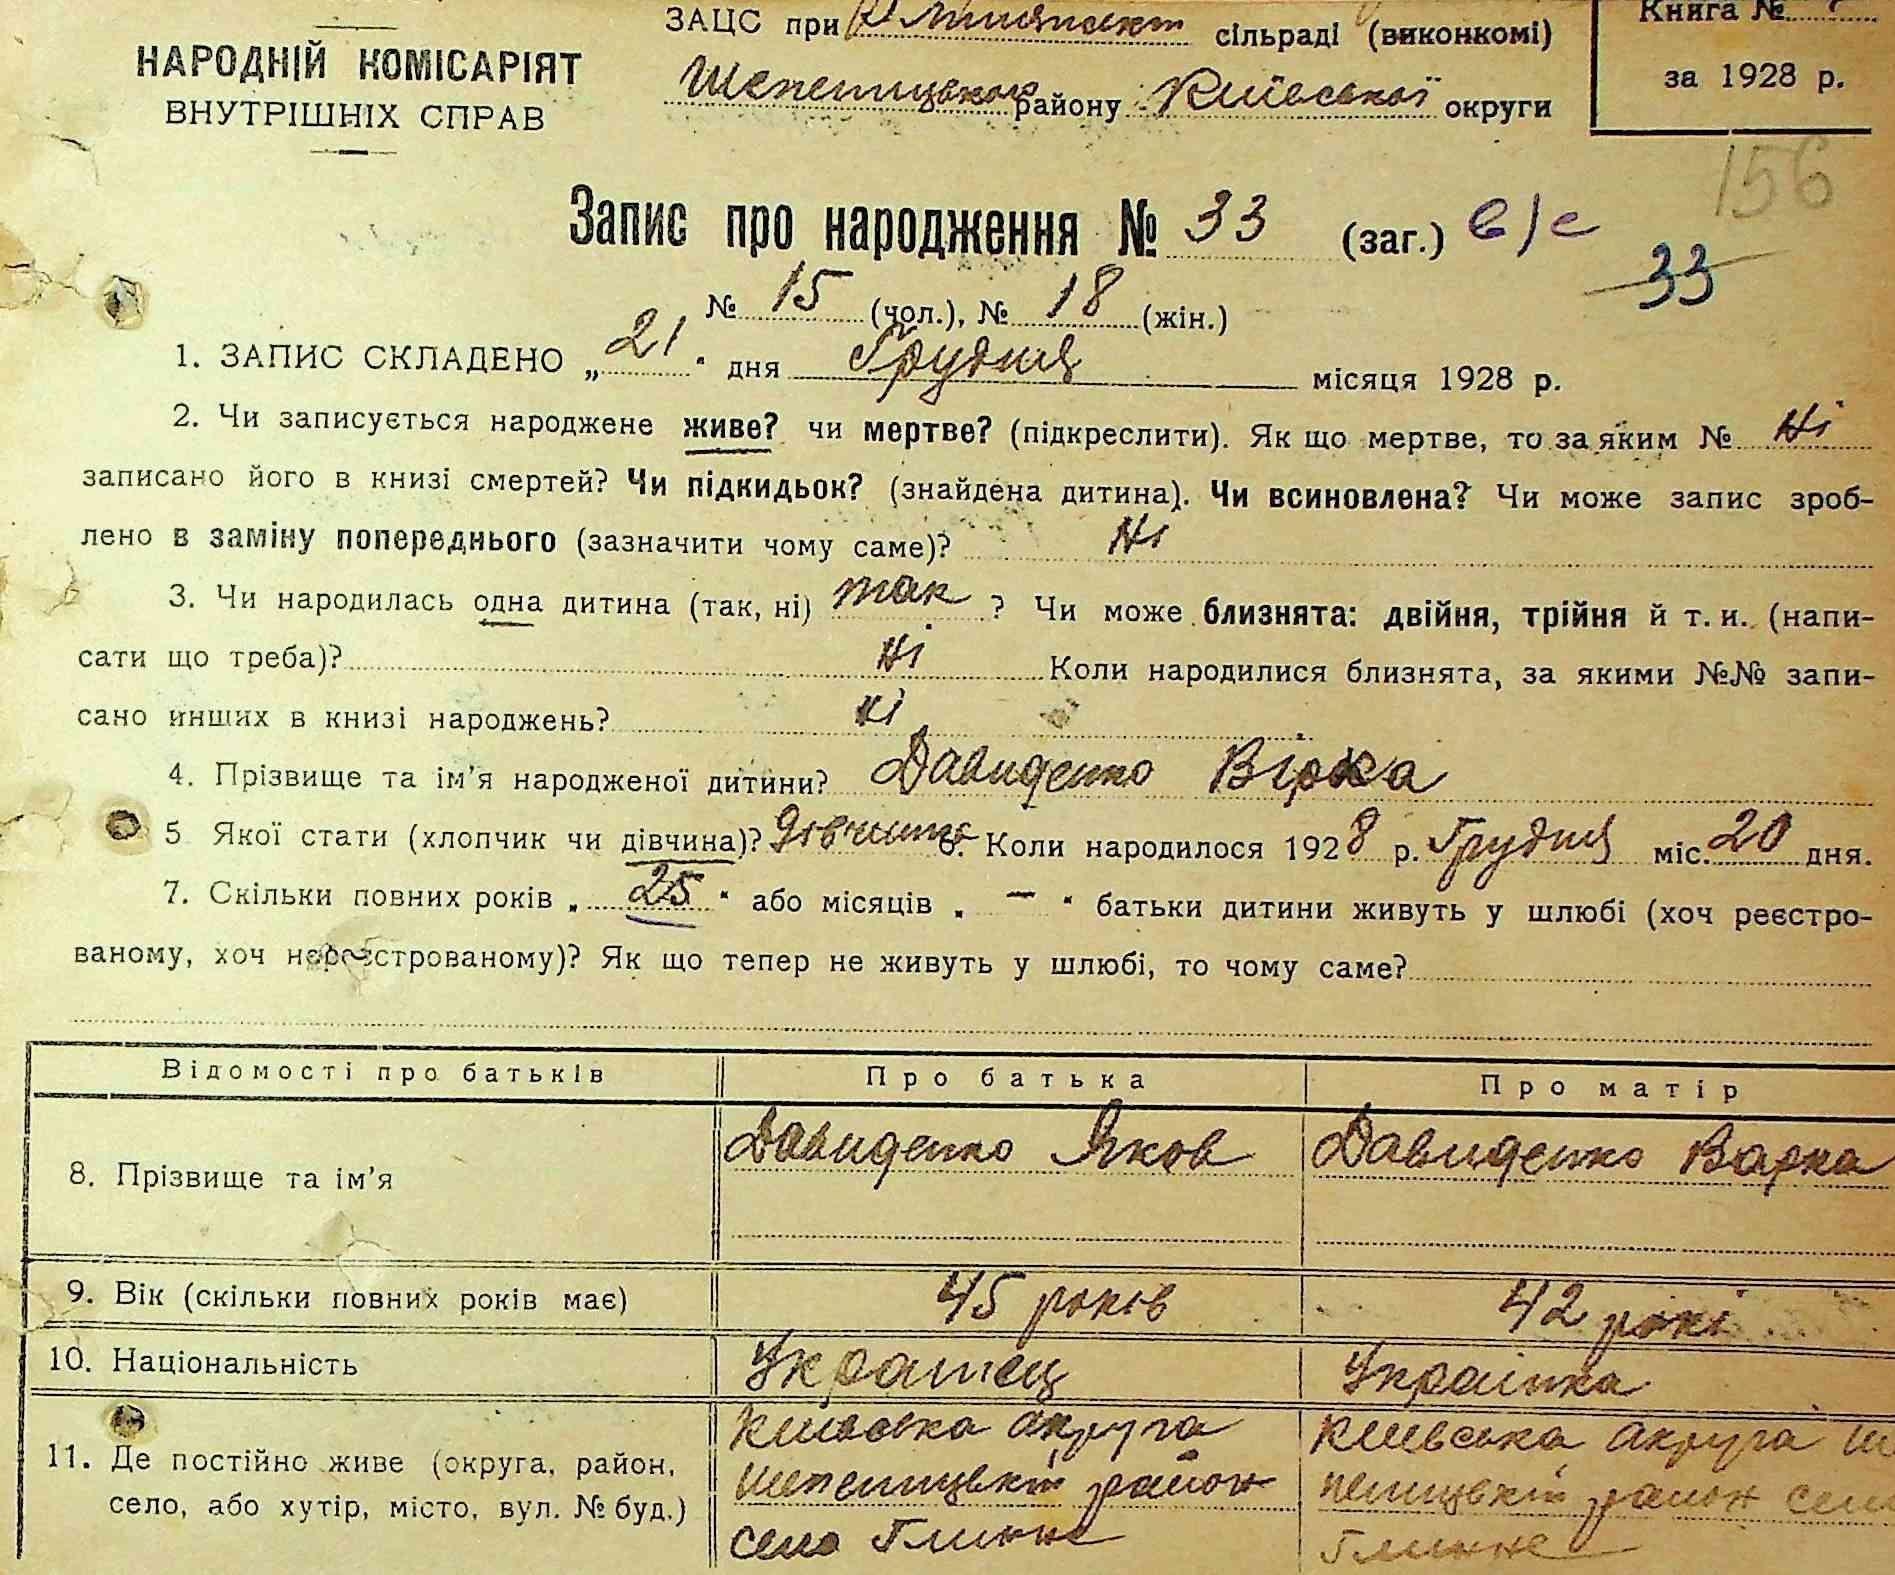 ЗАЦС при сільраді (виконкомі)
Книга №
НАРОДНІЙ КОМІСАРІЯТ
ВНУТРІШНІХ СПРАВ
Шепелицького району Київської округи
за 1928 р.
156
Запис про народження № 33 (заг.) в/с
33
№ 15 (чол.), № 18 (жін.)
1. ЗАПИС СКЛАДЕНО „21" дня Грудня місяця 1928 р.
2. Чи записується народжене живе? чи мертве? (підкреслити). Як що мертве, то за яким № Ні
записано його в книзі смертей? Чи підкидьок? (знайдена дитина). Чи всиновлена? Чи може запис зроб-
лено в заміну попереднього (зазначити чому саме)? Ні
3. Чи народилась одна дитина (так, ні) так ? Чи може близнята: двійня, трійня й т. и. (напи-
сати що треба)? Ні Коли народилися близнята, за якими №№ запи-
сано инших в книзі народжень? Ні
4. Прізвище та ім'я народженої дитини? Давиденко Вірка
5 Якої стати (хлопчик чи дівчина)? Дівчина 6. Коли народилося 1928 р. Грудня міс. 20 дня.
7. Скільки повних років „25" або місяців „—" батьки дитини живуть у шлюбі (хоч реєстро-
ваному, хоч нереєстрованому)? Як що тепер не живуть у шлюбі, то чому саме?
Відомості про батьків Про батька Про матір
8. Прізвище та ім'я Давиденко Яков Давиденко Варка
9. Вік (скільки повних років має) 45 років 42 рокі
10. Національність Українец Українка
11. Де постійно живе (округа, район,
село, або хутір, місто, вул. № буд.)
Київська округа
Шепелицькій район
село Глинне
Київська округа Ше
пелицькій район село
Глинне